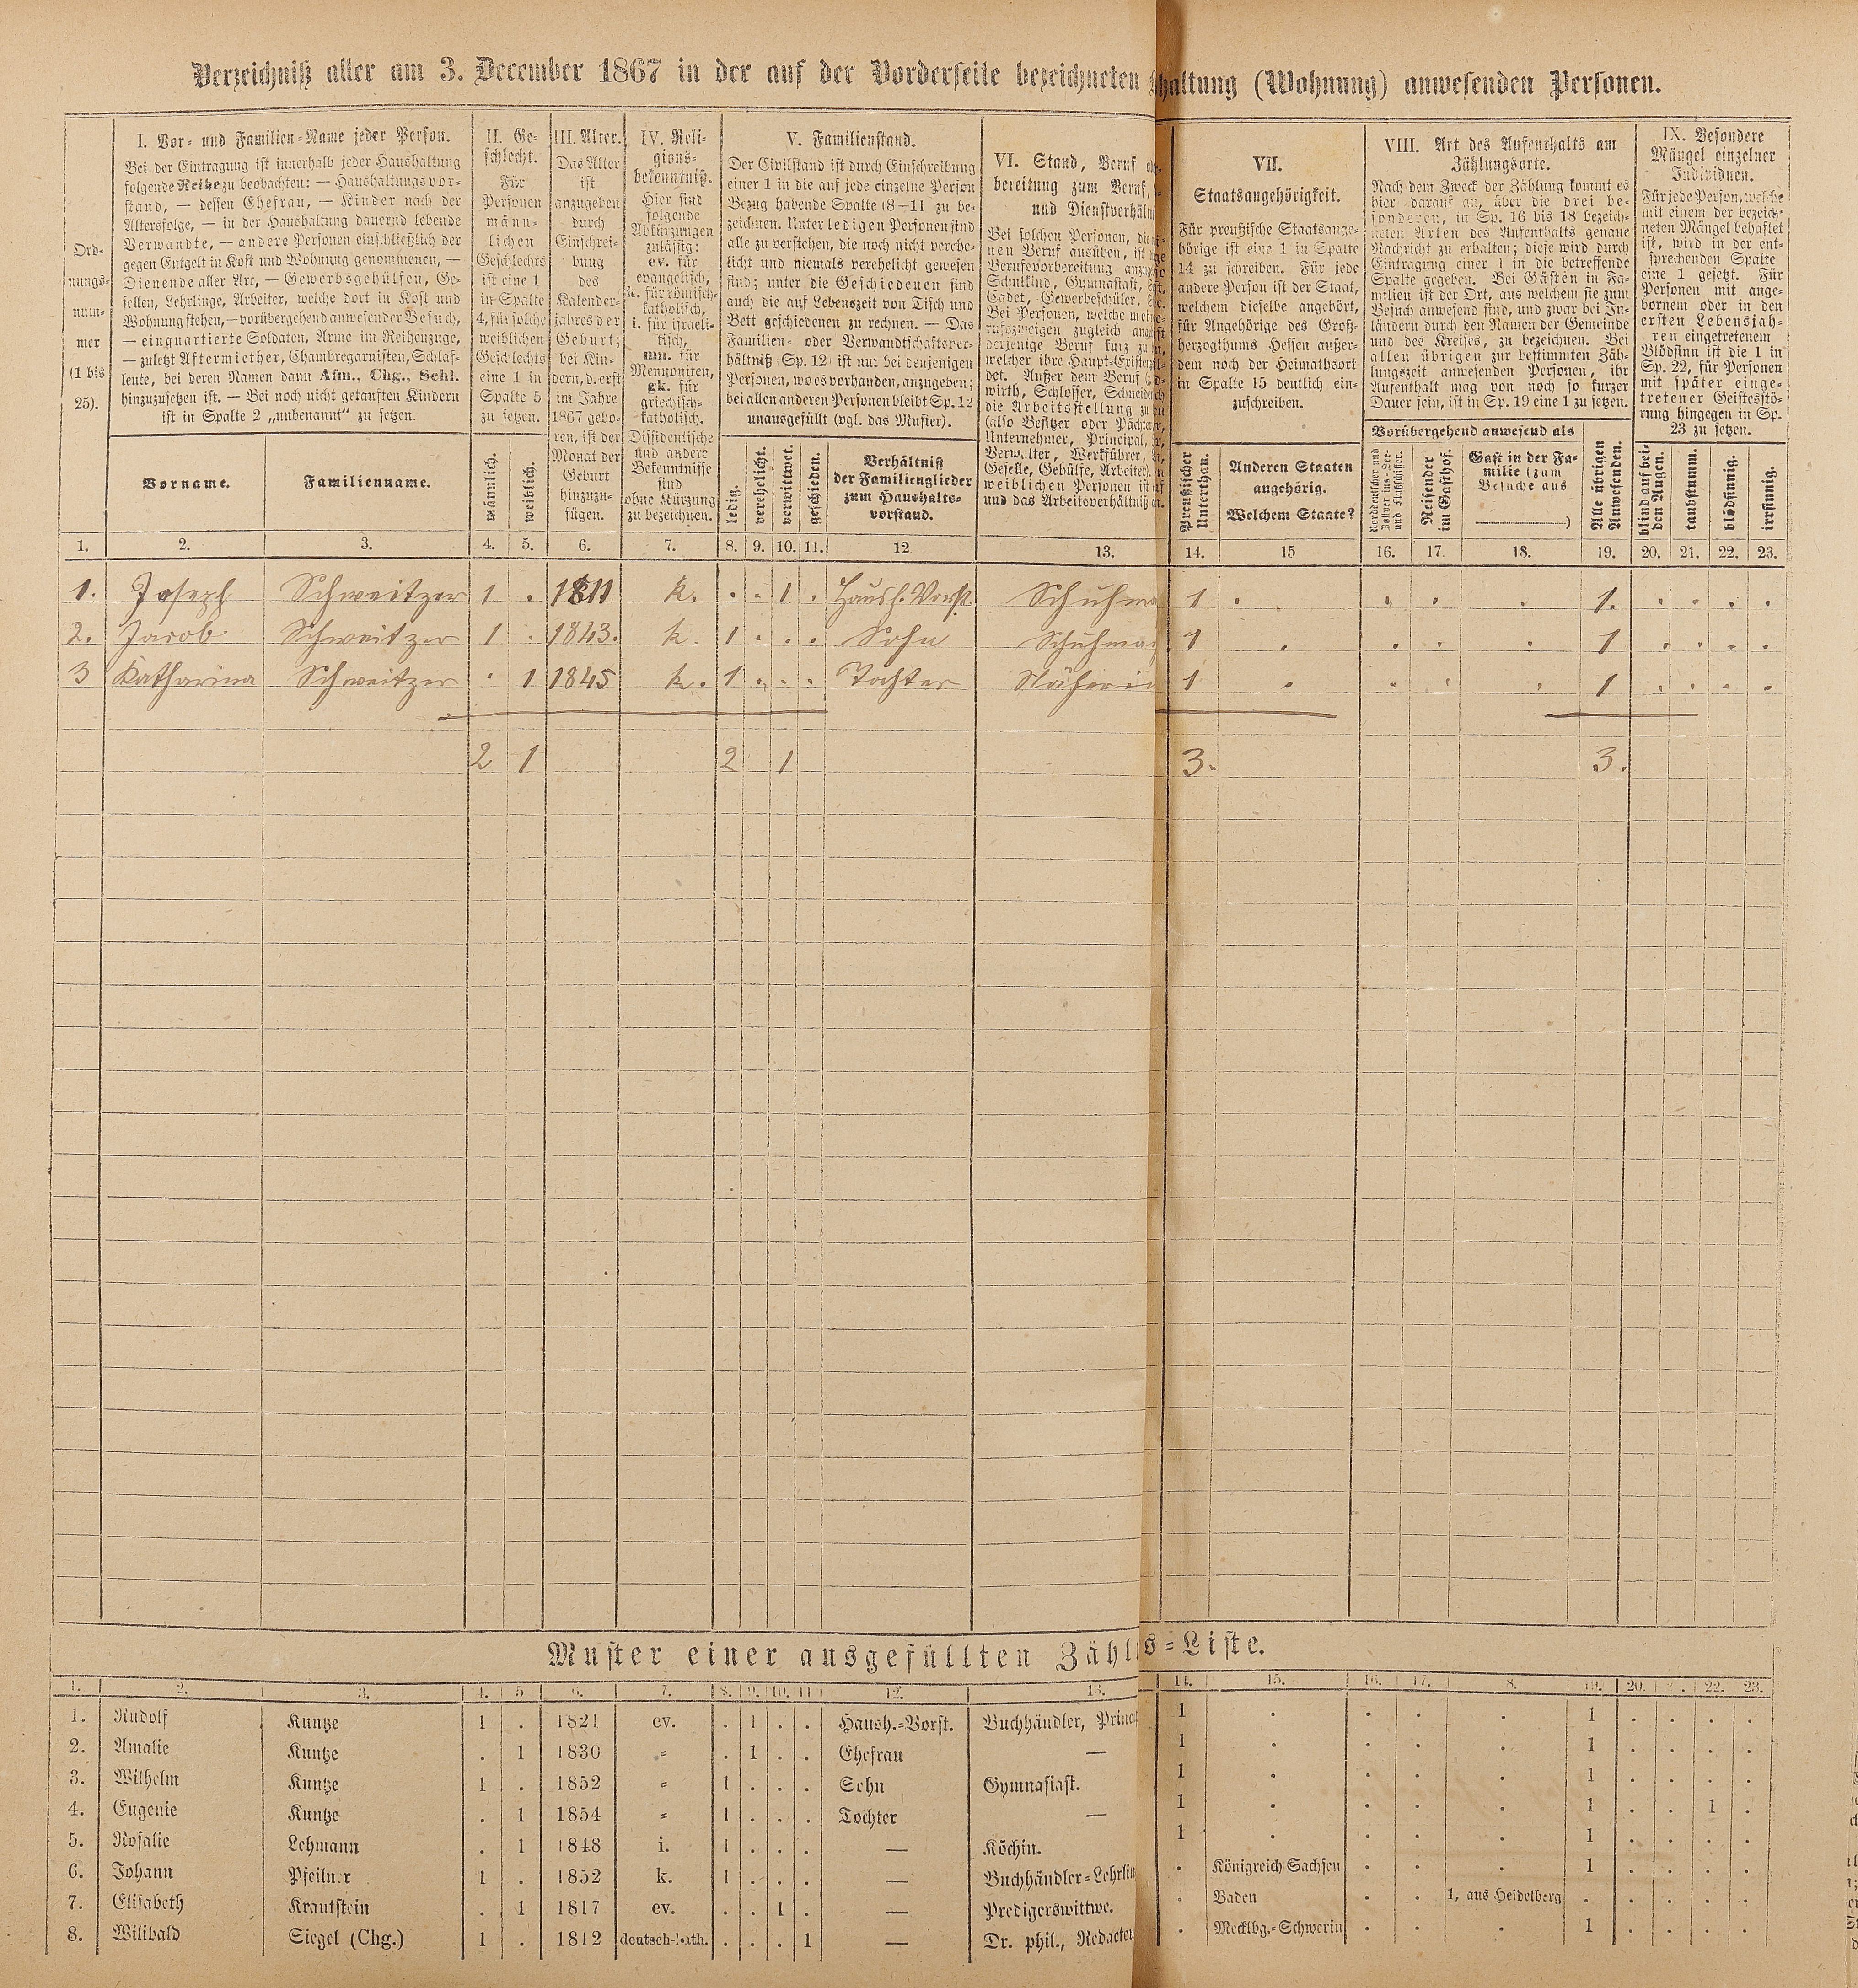 Verzeichniß aller am 3. December 1867 in der auf der Vorderseite bezeichneten haltung (Wohnung) anwesenden Personen.
Ord-
nungs-
num-
mer
(1 bis
25).
I. Vor- und Familien-Name jeder Person.
Bei der Eintragung ist innerhalb jeder Haushaltung
folgende Reihe zu beobachten: — Haushaltungsvor-
stand, — dessen Ehefrau, — Kinder nach der
Altersfolge, — in der Haushaltung dauernd lebende
Verwandte, — andere Personen einschließlich der
gegen Entgelt in Kost und Wohnung genommenen, —
Dienende aller Art, — Gewerbsgehülfen, Ge-
sellen, Lehrlinge, Arbeiter, welche dort in Kost und
Wohnung stehen, — vorübergehend anwesender Besuch,
— einquartierte Soldaten, Arme im Reihenzuge,
— zuletzt Aftermiether, Chambregarnisten, Schlaf-
leute, bei deren Namen dann Afm., Chg., Schl.
hinzuzusetzen ist. — Bei noch nicht getauften Kindern
ist in Spalte 2 „unbenannt" zu setzen.
Vorname.
Familienname.
II. Ge-
schlecht.
Für
Personen
männ-
lichen
Geschlechts
ist eine 1
in Spalte
4, für solche
weiblichen
Geschlechts
eine 1 in
Spalte 5
zu setzen.
männlich.
weiblich.
III. Alter.
Das Alter
ist
anzugeben
durch
Einschrei-
bung
des
Kalender-
jahres der
Geburt;
bei Kin-
dern, d. erst
im Jahre
1867 gebo-
ren, ist der
Monat der
Geburt
hinzuzu-
fügen.
IV. Reli-
gions-
bekenntniß.
Hier sind
folgende
Abkürzungen
zulässig:
ev. für
evangelisch,
k. für römisch-
katholisch,
i. für israeli-
tisch,
mn. für
Mennoniten,
gk. für
griechisch-
katholisch.
Dissidentische
und andere
Bekenntnisse
sind
ohne Kürzung
zu bezeichnen.
V. Familienstand.
Der Civilstand ist durch Einschreibung
einer 1 in die auf jede einzelne Person
Bezug habende Spalte (8—11 zu be-
zeichnen. Unter ledigen Personen sind
alle zu verstehen, die noch nicht verehe-
licht und niemals verehelicht gewesen
sind; unter die Geschiedenen sind
auch die auf Lebenszeit von Tisch und
Bett geschiedenen zu rechnen. — Das
Familien- oder Verwandtschaftsver-
hältniß (Sp. 12) ist nur bei denjenigen
Personen, wo es vorhanden, anzugeben;
bei allen anderen Personen bleibt Sp. 12
unausgefüllt (vgl. das Muster).
ledig.
verehelicht.
verwittwet.
geschieden.
Verhältniß
der Familienglieder
zum Haushalts-
vorstand.
VI. Stand, Beruf
bereitung zum Beruf,
und Dienstverhält
Bei solchen Personen, die
nen Beruf ausüben, ist
Berufsvorbereitung
Schulkind, Gymnasiast,
Cadet, Gewerbeschüler,
Bei Personen, welche
rufszweigen zugleich
derjenige Beruf kurz zu
welcher ihre Haupt-
det. Außer dem Beruf
wirth, Schlosser, Schneider
die Arbeitsstellung zu
(also Besitzer oder Pächter
Unternehmer, Principal,
Verwalter, Werkführer,
Geselle, Gehülfe, Arbeiter).
weiblichen Personen ist
und das Arbeitsverhältniß
VII.
Staatsangehörigkeit.
Für preußische Staatsange-
hörige ist eine 1 in Spalte
14 zu schreiben. Für jede
andere Person ist der Staat,
welchem dieselbe angehört,
für Angehörige des Groß-
herzogthums Hessen außer-
dem noch der Heimathsort
in Spalte 15 deutlich ein-
zuschreiben.
Preußischer
Unterthan.
Anderen Staaten
angehörig.
Welchem Staate?
VIII. Art des Aufenthalts am
Zählungsorte.
Nach dem Zweck der Zählung kommt es
hier darauf an, über die drei be-
sonderen, in Sp. 16 bis 18 bezeich-
neten Arten des Aufenthalts genaue
Nachricht zu erhalten; diese wird durch
Eintragung einer 1 in die betreffende
Spalte gegeben. Bei Gästen in Fa-
milien ist der Ort, aus welchem sie zum
Besuch anwesend sind, und zwar bei In-
ländern durch den Namen der Gemeinde
und des Kreises, zu bezeichnen. Bei
allen übrigen zur bestimmten Zäh-
lungszeit anwesenden Personen, ihr
Aufenthalt mag von noch so kurzer
Dauer sein, ist in Sp. 19 eine 1 zu setzen.
Vorübergehend anwesend als
Norddeutscher und
Zollvereins-See-
und Flußschiffer.
Reisender
im Gasthof.
Gast in der Fa-
milie (zum
Besuche aus
)
Alle übrigen
Anwesenden.
IX. Besondere
Mängel einzelner
Individuen.
Für jede Person, welche
mit einem der bezeich-
neten Mängel behaftet
ist, wird in der ent-
sprechenden Spalte
eine 1 gesetzt. Für
Personen mit ange-
bornem oder in den
ersten Lebensjah-
ren eingetretenem
Blödsinn ist die 1 in
Sp. 22, für Personen
mit später einge-
tretener Geistesstö-
rung hingegen in Sp.
23 zu setzen.
blind auf bei-
den Augen.
taubstumm.
blödsinnig.
irrsinnig.
1. 2. 3. 4. 5. 6. 7. 8. 9. 10. 11. 12 13. 14. 15 16. 17. 18. 19. 20. 21. 22. 23.
1. Joseph Schweitzer 1 . 1811 k. . . 1 . Haush. Vorst. Schuhma 1 . . . . 1. . . . .
2. Jacob Schweitzer 1 . 1843. k. 1 . . . Sohn Schuhmac 1 . . . . 1 . . . .
3 Katharina Schweitzer . 1 1845 k. 1 . . . Tochter Näherin 1 . . . . 1 . . . .
2 1 2 1 3. 3.
Muster einer ausgefüllten Zähl s-Liste.
1. 2. 3. 4. 5 6. 7. 8. 9. 10. 11 12. 13. 14. 15. 16. 17. 8. 19. 20. 22. 23.
1. Rudolf Kuntze 1 . 1821 ev. . 1 . . Haush.-Vorst. Buchhändler, Princ 1 . . . . 1 . . . .
2. Amalie Kuntze . 1 1830 " . 1 . . Ehefrau — 1 . . . . 1 . . . .
3. Wilhelm Kuntze 1 . 1852 " 1 . . . Sohn Gymnasiast. 1 . . . . 1 . . . .
4. Eugenie Kuntze . 1 1854 " 1 . . . Tochter — 1 . . . . 1 . . 1 .
5. Rosalie Lehmann . 1 1848 i. 1 . . . — Köchin. 1 . . . . 1 . . . .
6. Johann Pfeilner 1 . 1852 k. 1 . . . — Buchhändler-Lehrlin . Königreich Sachsen . . . 1 . . . .
7. Elisabeth Krautstein . 1 1817 ev. . . 1 . — Predigerswittwe. . Baden . . 1, aus Heidelberg . . . . .
8. Wilibald Siegel (Chg.) 1 . 1812 deutsch-kath. . . . 1 — Dr. phil., Redacteu . Mecklbg.-Schwerin . . . 1 . . . .